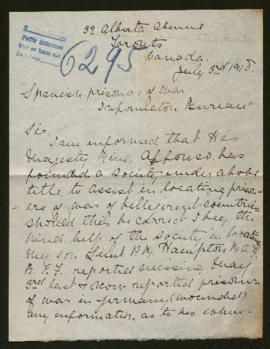 39 Alberta Avenue
Toronto
Canada.
July 3rd 1918
6295
Spanish prisoners of War
Information Bureau"
Sir
I am informed that His
Majesty King Alfonso has
founded a society under above
title to assist in locating prison-
ers of war of billerent countries
should this be correct I beg the
kind help of the society in locating
my son Lieut Hampton R.A.F.
B.E.F. reported missing May
3rd last & now reported prisoner
of war in Germany (wounded)
any information as to his